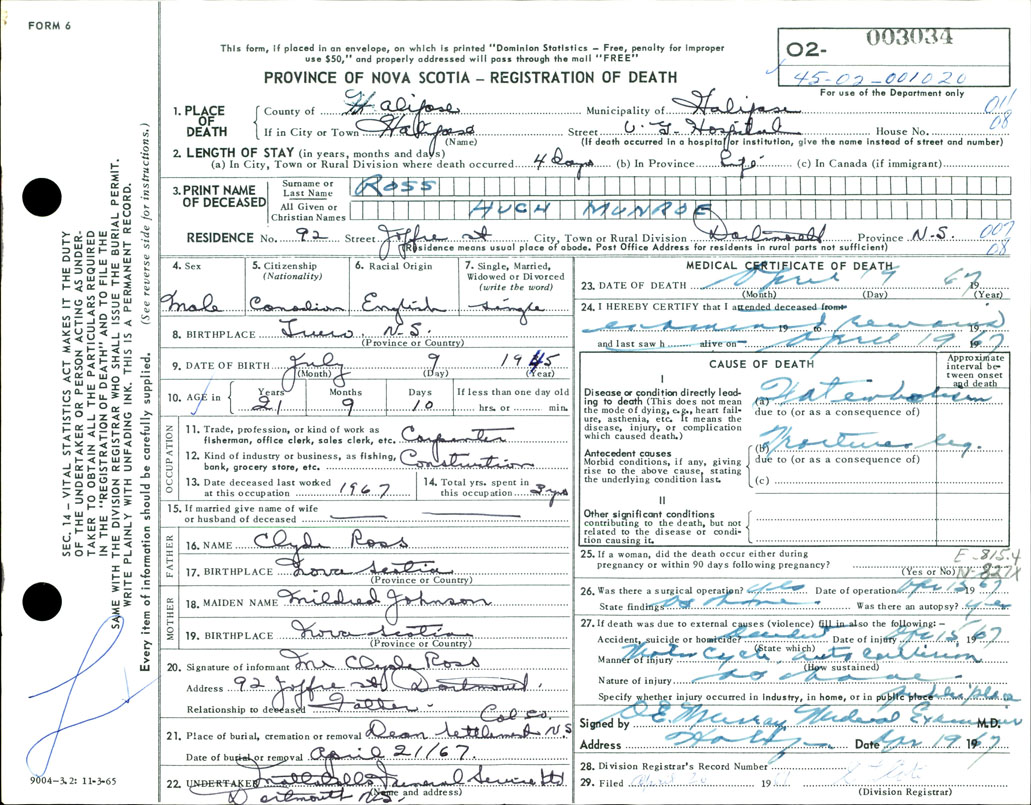 FORM 6
This form, if placed in an envelope, on which is printed "Dominion Statistics – Free, penalty for improper
use $50," and properly addressed will pass through the mail "FREE"
PROVINCE OF NOVA SCOTIA – REGISTRATION OF DEATH
O2- 003034
45-02-001020
For use of the Department only
1. PLACE OF DEATH County of Halifax Municipality of Halifax 011
If in City or Town Halifax Street V. G. Hospital House No. 08
(Name) (If death occurred in a hospital or institution, give the name instead of street and number)
2. LENGTH OF STAY (in years, months and days)
(a) In City, Town or Rural Division where death occurred 4 days (b) In Province Life (c) In Canada (if immigrant)
3. PRINT NAME OF DECEASED
Surname or Last Name ROSS
All Given or Christian Names HUGH MUNROE
RESIDENCE No. 92 Street Joffre St City, Town or Rural Division Dartmouth Province N.S. 007
08
(Residence means usual place of abode. Post Office Address for residents in rural parts not sufficient)
4. Sex Male
5. Citizenship (Nationality) Canadian
6. Racial Origin English
7. Single, Married, Widowed or Divorced (write the word) Single
8. BIRTHPLACE Truro, N.S.
(Province or Country)
9. DATE OF BIRTH July 9 1945
(Month) (Day) (Year)
10. AGE in Years 21 Months 9 Days 10 If less than one day old hrs. or min.
OCCUPATION
11. Trade, profession, or kind of work as fisherman, office clerk, sales clerk, etc. Carpenter
12. Kind of industry or business, as fishing, bank, grocery store, etc. Construction
13. Date deceased last worked at this occupation 1967
14. Total yrs. spent in this occupation 3 yrs
15. If married give name of wife or husband of deceased
FATHER
16. NAME Clyde Ross
17. BIRTHPLACE Nova Scotia
(Province or Country)
MOTHER
18. MAIDEN NAME Mildred Johnson
19. BIRTHPLACE Nova Scotia
(Province or Country)
20. Signature of informant Mr Clyde Ross
Address 92 Joffre St Dartmouth.
Relationship to deceased Father
21. Place of burial, cremation or removal Dean Settlement Col. Co. N.S
Date of burial or removal April 21/67.
22. UNDERTAKER Mattatall's Funeral Service Ltd
Dartmouth N.S.
(Name and address)
MEDICAL CERTIFICATE OF DEATH
23. DATE OF DEATH April 19 1967
(Month) (Day) (Year)
24. I HEREBY CERTIFY that I attended deceased from
examined remains 19 to 19
and last saw h alive on April 19 1967
CAUSE OF DEATH
Approximate interval between onset and death
I
Disease or condition directly leading to death (This does not mean the mode of dying, e.g., heart failure, asthenia, etc. It means the disease, injury, or complication which caused death.)
(a) Fat embolism
due to (or as a consequence of)
Antecedent causes
Morbid conditions, if any, giving rise to the above cause, stating the underlying condition last.
(b) Fractured leg.
due to (or as a consequence of)
(c)
II
Other significant conditions
contributing to the death, but not related to the disease or condition causing it.
25. If a woman, did the death occur either during pregnancy or within 90 days following pregnancy? (Yes or No)
E-815.4
N-827X
26. Was there a surgical operation? yes Date of operation Apr 15 1967
State findings as above Was there an autopsy? Yes
27. If death was due to external causes (violence) fill in also the following:–
Accident, suicide or homicide? Accident Date of injury Apr 15 1967
(State which)
Manner of injury Motor Cycle auto collision
(How sustained)
Nature of injury as above
Specify whether injury occurred in industry, in home, or in public place public place
Signed by O E. Murray Medical Examiner M.D.
Address Halifax Date Apr 19 1967
28. Division Registrar's Record Number
29. Filed 19
(Division Registrar)
SEC. 14 – VITAL STATISTICS ACT MAKES IT THE DUTY
OF THE UNDERTAKER OR PERSON ACTING AS UNDER-
TAKER TO OBTAIN ALL THE PARTICULARS REQUIRED
IN THE "REGISTRATION OF DEATH" AND TO FILE THE
SAME WITH THE DIVISION REGISTRAR WHO SHALL ISSUE THE BURIAL PERMIT.
WRITE PLAINLY WITH UNFADING INK. THIS IS A PERMANENT RECORD.
Every item of information should be carefully supplied. (See reverse side for instructions.)
9004–3.2: 11-3-65